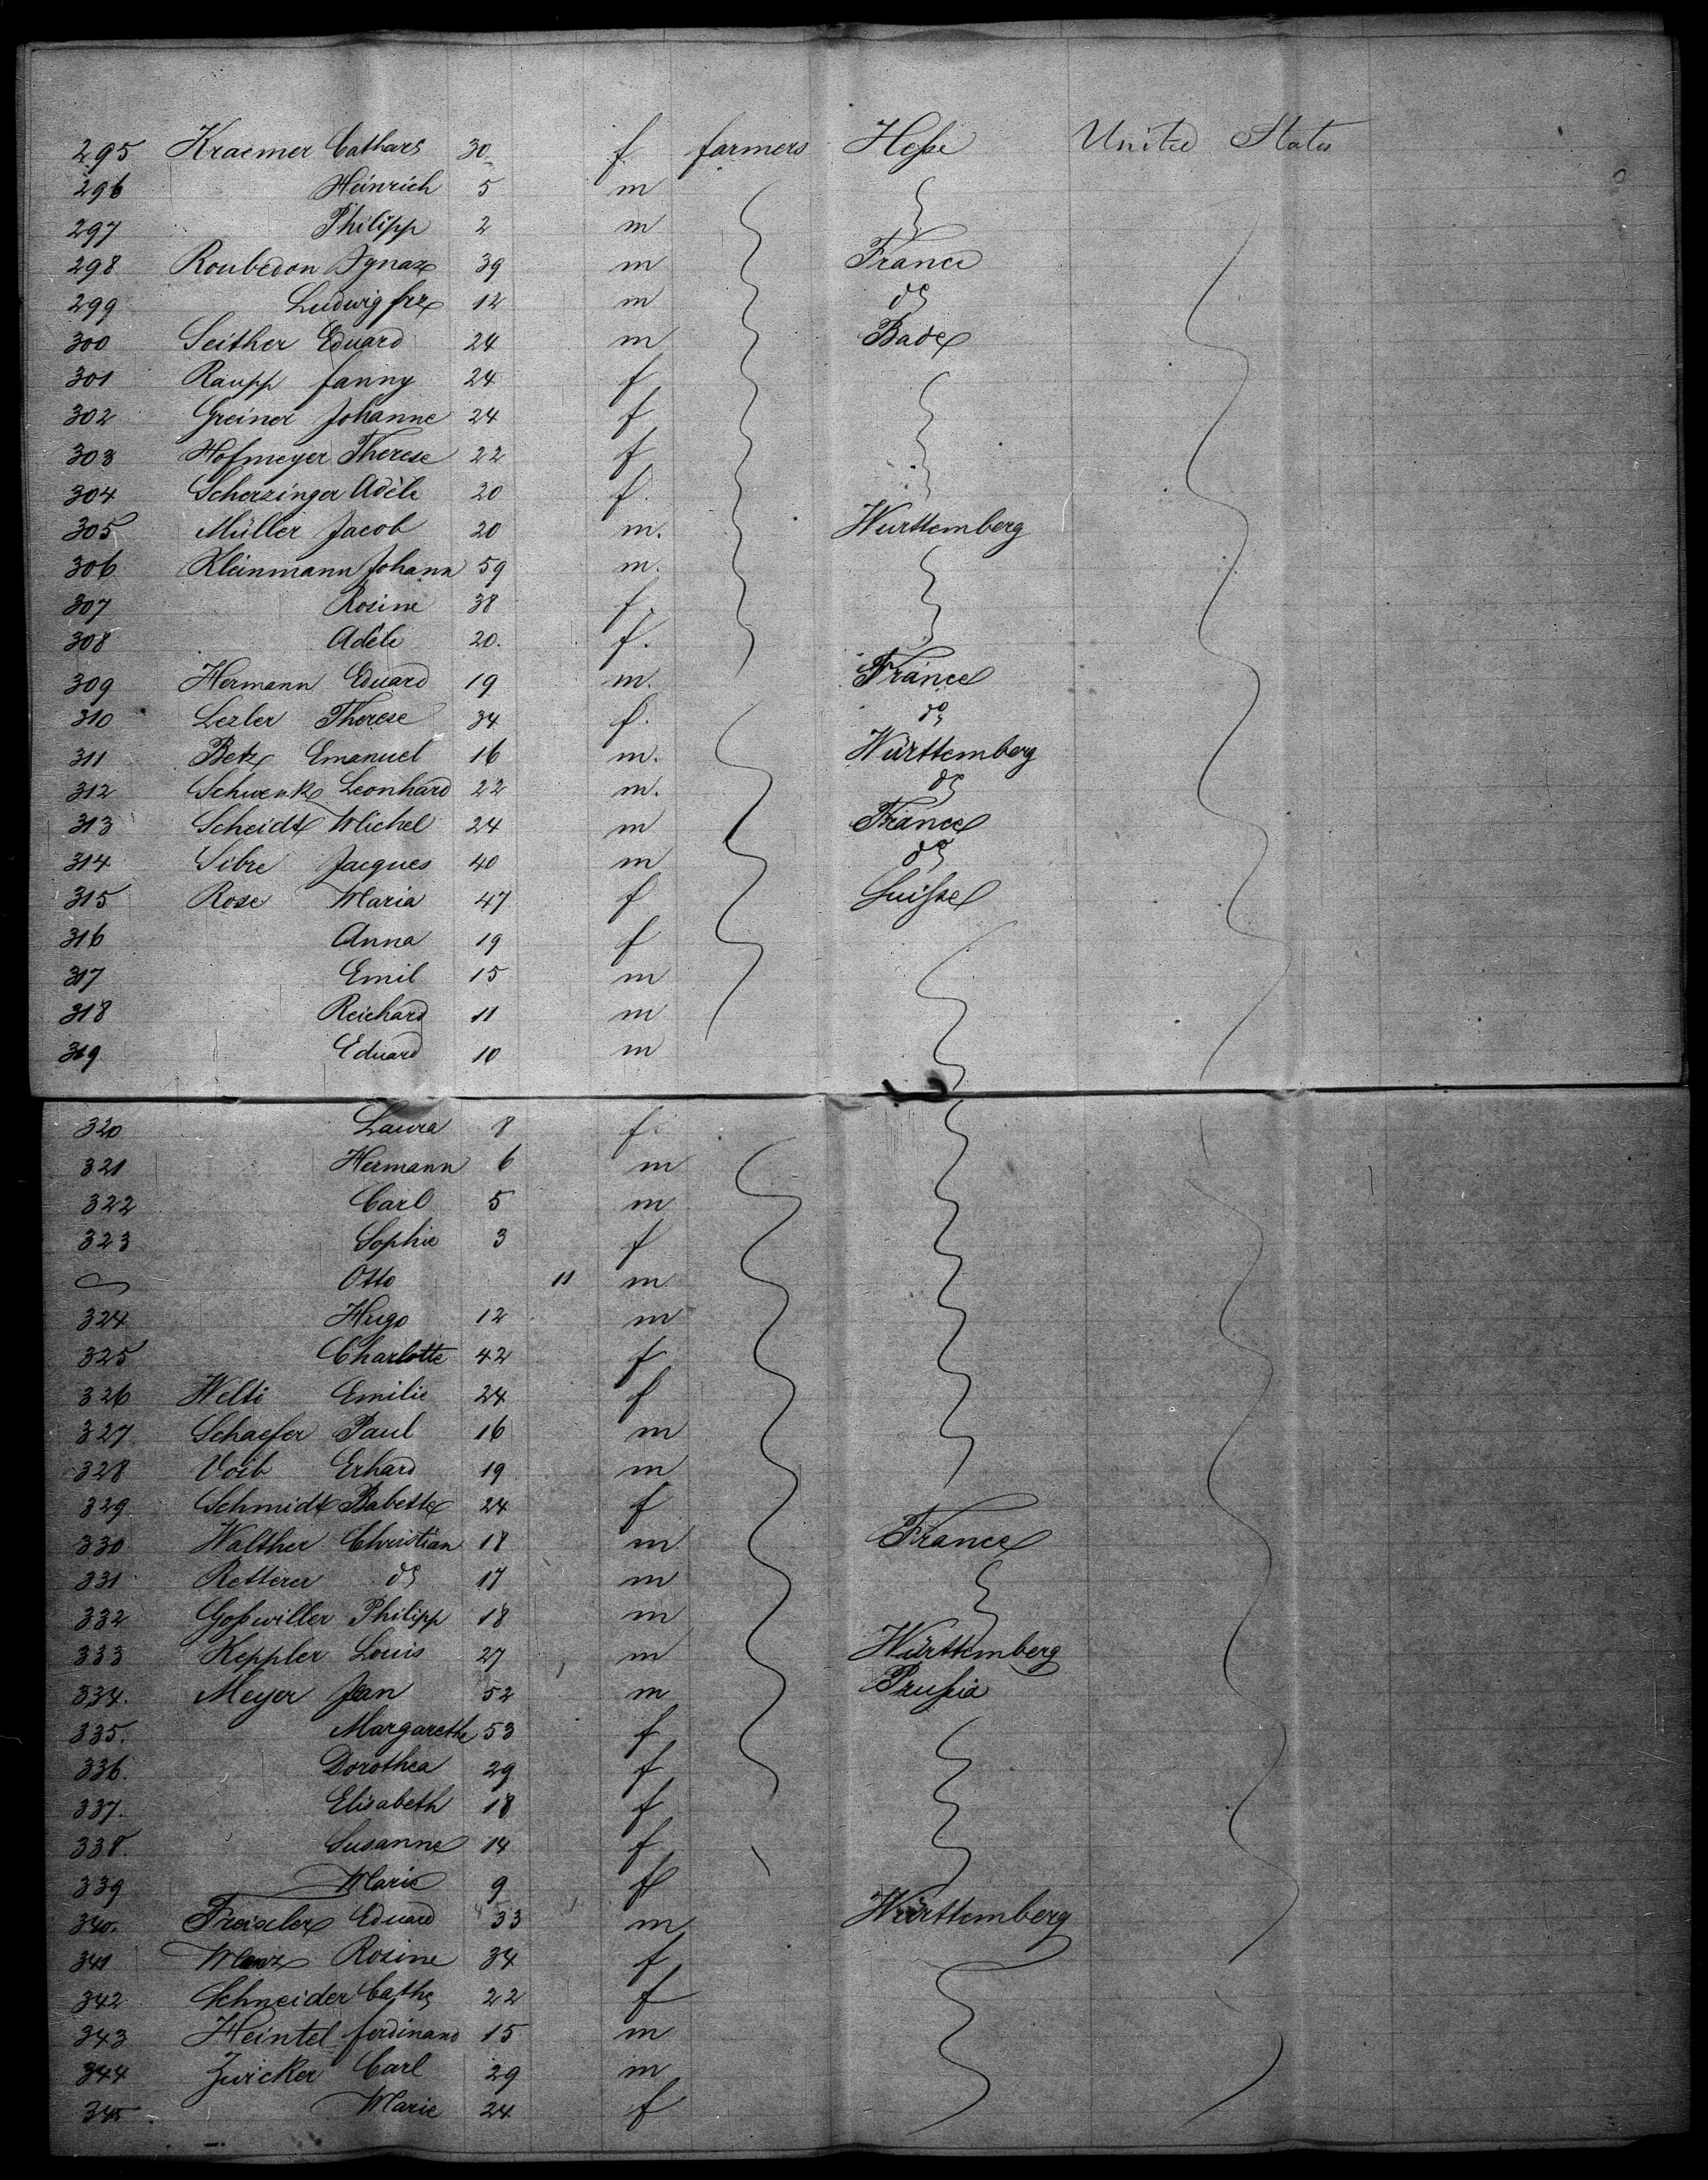 295 Kraemer Cathar⁵ 30 f farmers Hesse United States
296 Heinrich 5 m
297 Philipp 2 m
298 Roubedon Ignaz 39 m France
299 Ludwig frz 12 m do
300 Seither Eduard 24 m Bade
301 Raupp Fanny 24 f
302 Greiner Johanne 24 f
303 Hofmeyer Therese 22 f
304 Scherzinger Adèle 20 f.
305 Müller Jacob 20 m. Wurttemberg
306 Kleinmann Johann 59 m.
307 Rosine 38 f.
308 Adèle 20. f.
309 Hermann Eduard 19 m. France
310 Lezler Therese 34 f. do
311 Betz Emanuel 16 m. Württemberg
312 Schwenk Leonhard 22 m. do
313 Scheidt Michel 24 m France
314 Sibre Jacques 40 m do
315 Rose Maria 47 f Suisse
316 Anna 19 f
317 Emil 15 m
318 Reichard 11 m
319 Eduard 10 m
320 Laura 8 f.
321 Hermann 6 m
322 Carl 5 m
323 Sophie 3 f
Otto 11 m
324 Hugo 12 m
325 Charlotte 42 f
326 Welti Emilie 24 f
327 Schaefer Paul 16 m
328 Voib Erhard 19 m
329 Schmidt Babette 24 f
330 Walther Christian 18 m France
331 Retterer do 17 m
332 Goßwiller Philipp 18 m
333 Keppler Louis 27 m Württemberg
334. Meyer Jean 52 m Prussia
335. Margarethe 53 f
336. Dorothea 29 f
337. Elisabeth 18 f
338. Susanne 14 f
339 Marie 9 f
340. Eduard 33 m Württemberg
341 Menz Rosine 34 f
342 Schneider Cath⁵ 22 f
343 Heintel Ferdinand 15 m
344 Zwicker Carl 29 m
345. Marie 24 f